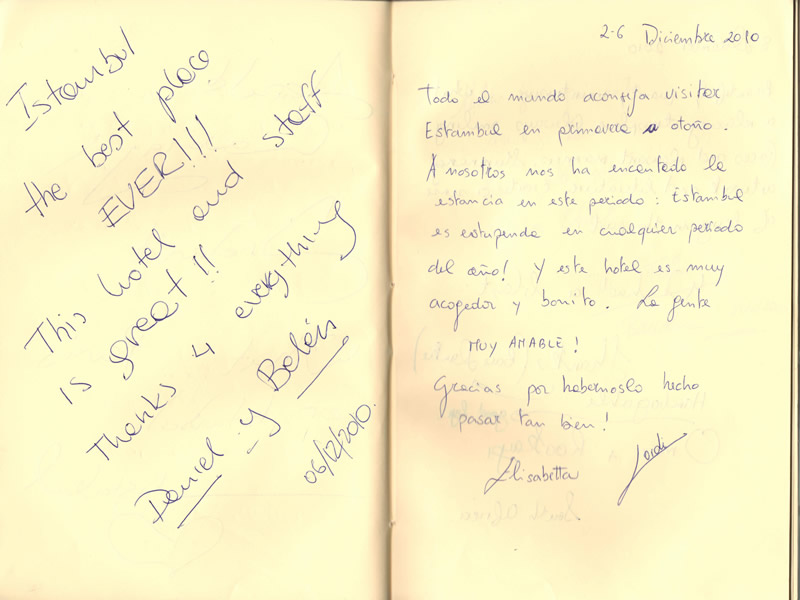 Istambul
the best place
EVER!!!
This hotel and staff
is great!!
Thanks 4 everything
Daniel y Belén
06/12/2010.
2-6 Diciembre 2010
Todo el mundo aconseja visitar
Estambul en primavera o otoño.
A nosotros nos ha encantado la
estancia en este periodo: Estambul
es estupenda en cualquier periodo
del año! Y este hotel es muy
acogedor y bonito. La gente
MUY AMABLE!
Gracias por habernoslo hecho
pasar tan bien!
Elisabetta Jordi